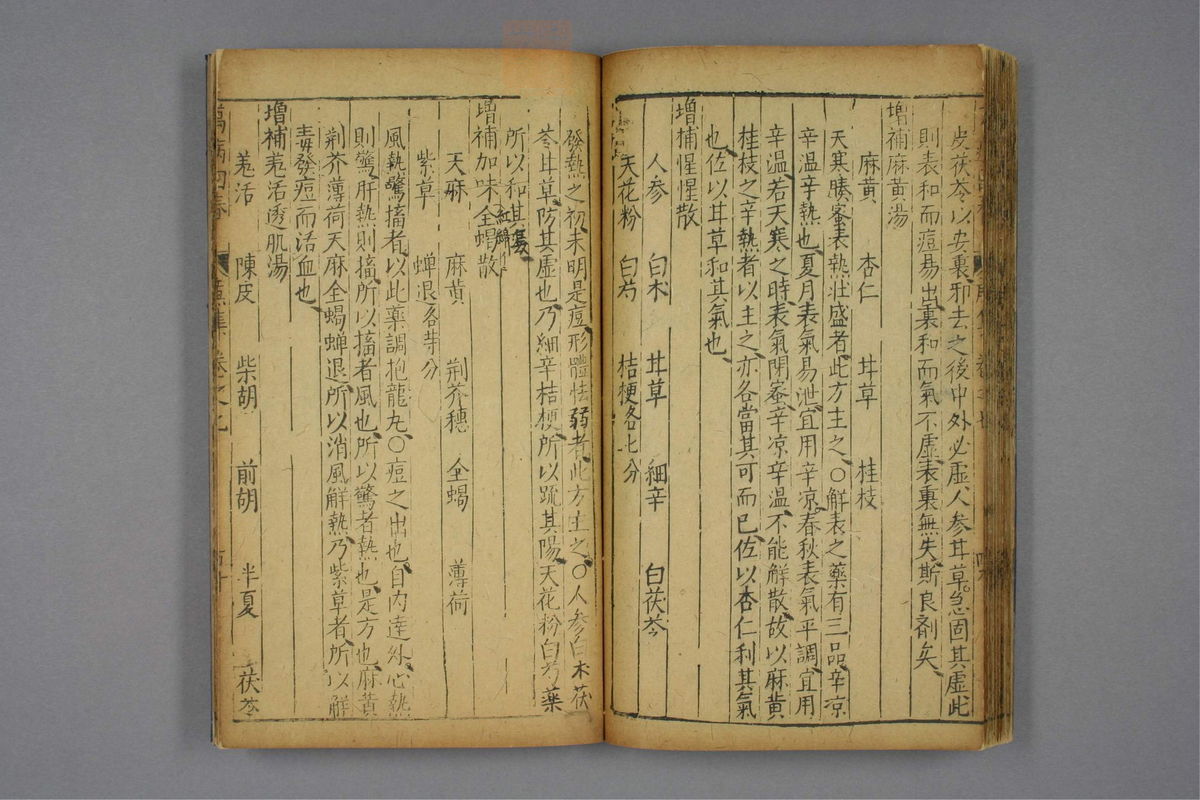 皮茯苓以安裏邪去之後中外必虛人參甘草急固其虛此
則表和而痘昜出裏和而氣不虛表裏無失斯良劑矣
增補麻黃湯
麻黃 杏仁 甘草 桂枝
天寒腠蜜表熱壯盛者此方主之○解表之藥有三品辛凉
辛溫辛熱也夏月表氣易泄宜用辛凉春秋表氣平調宜用
辛溫若天寒之時表氣閉密辛凉辛溫不能解散故以麻黃
桂枝之辛熱者以主之亦各當其可而已佐以杏仁利其氣
也佐以甘草和其氣也
增補惺惺散
人參 白朮 甘草 細辛 白茯苓
天花粉 白芍 桔梗各七分
發熱之初未明是痘形體怯弱者此方主之○人參白朮茯
苓甘草防其虛也乃細辛桔梗所以踈其陽天花粉白芍藥
所以和其
增補加味全蝎散
天麻 麻黃 荆芥穗 全蝎 薄荷
紫草 蟬退各等分
風熱驚搐者以此藥調抱龍丸○痘之出也自內達外心熱
則驚肝熱則搐所以搐者風也所以驚者熱也是方也麻黃
荆芥薄荷天麻全蝎蟬退所以消風解熱乃紫草者所以解
毒發痘而活血也
增補羗活透肌湯
羗活 陳皮 柴胡 前胡 半夏 茯苓
萬病回春